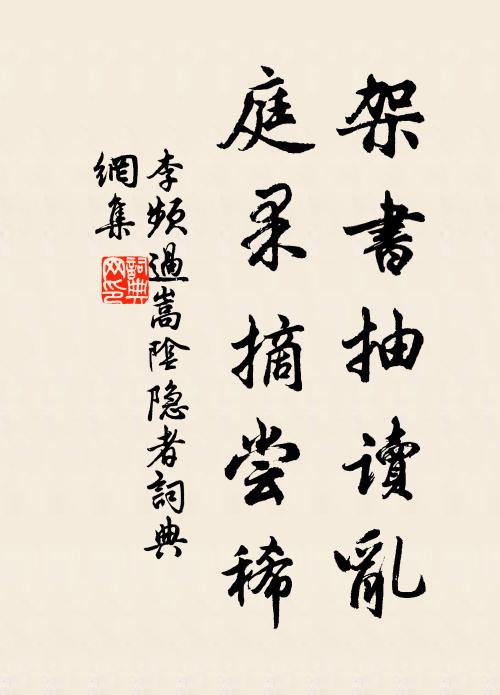 架書抽讀亂
庭果摘尝稀
李頻過嵩陰隐者詞典
網集
詞典
网印